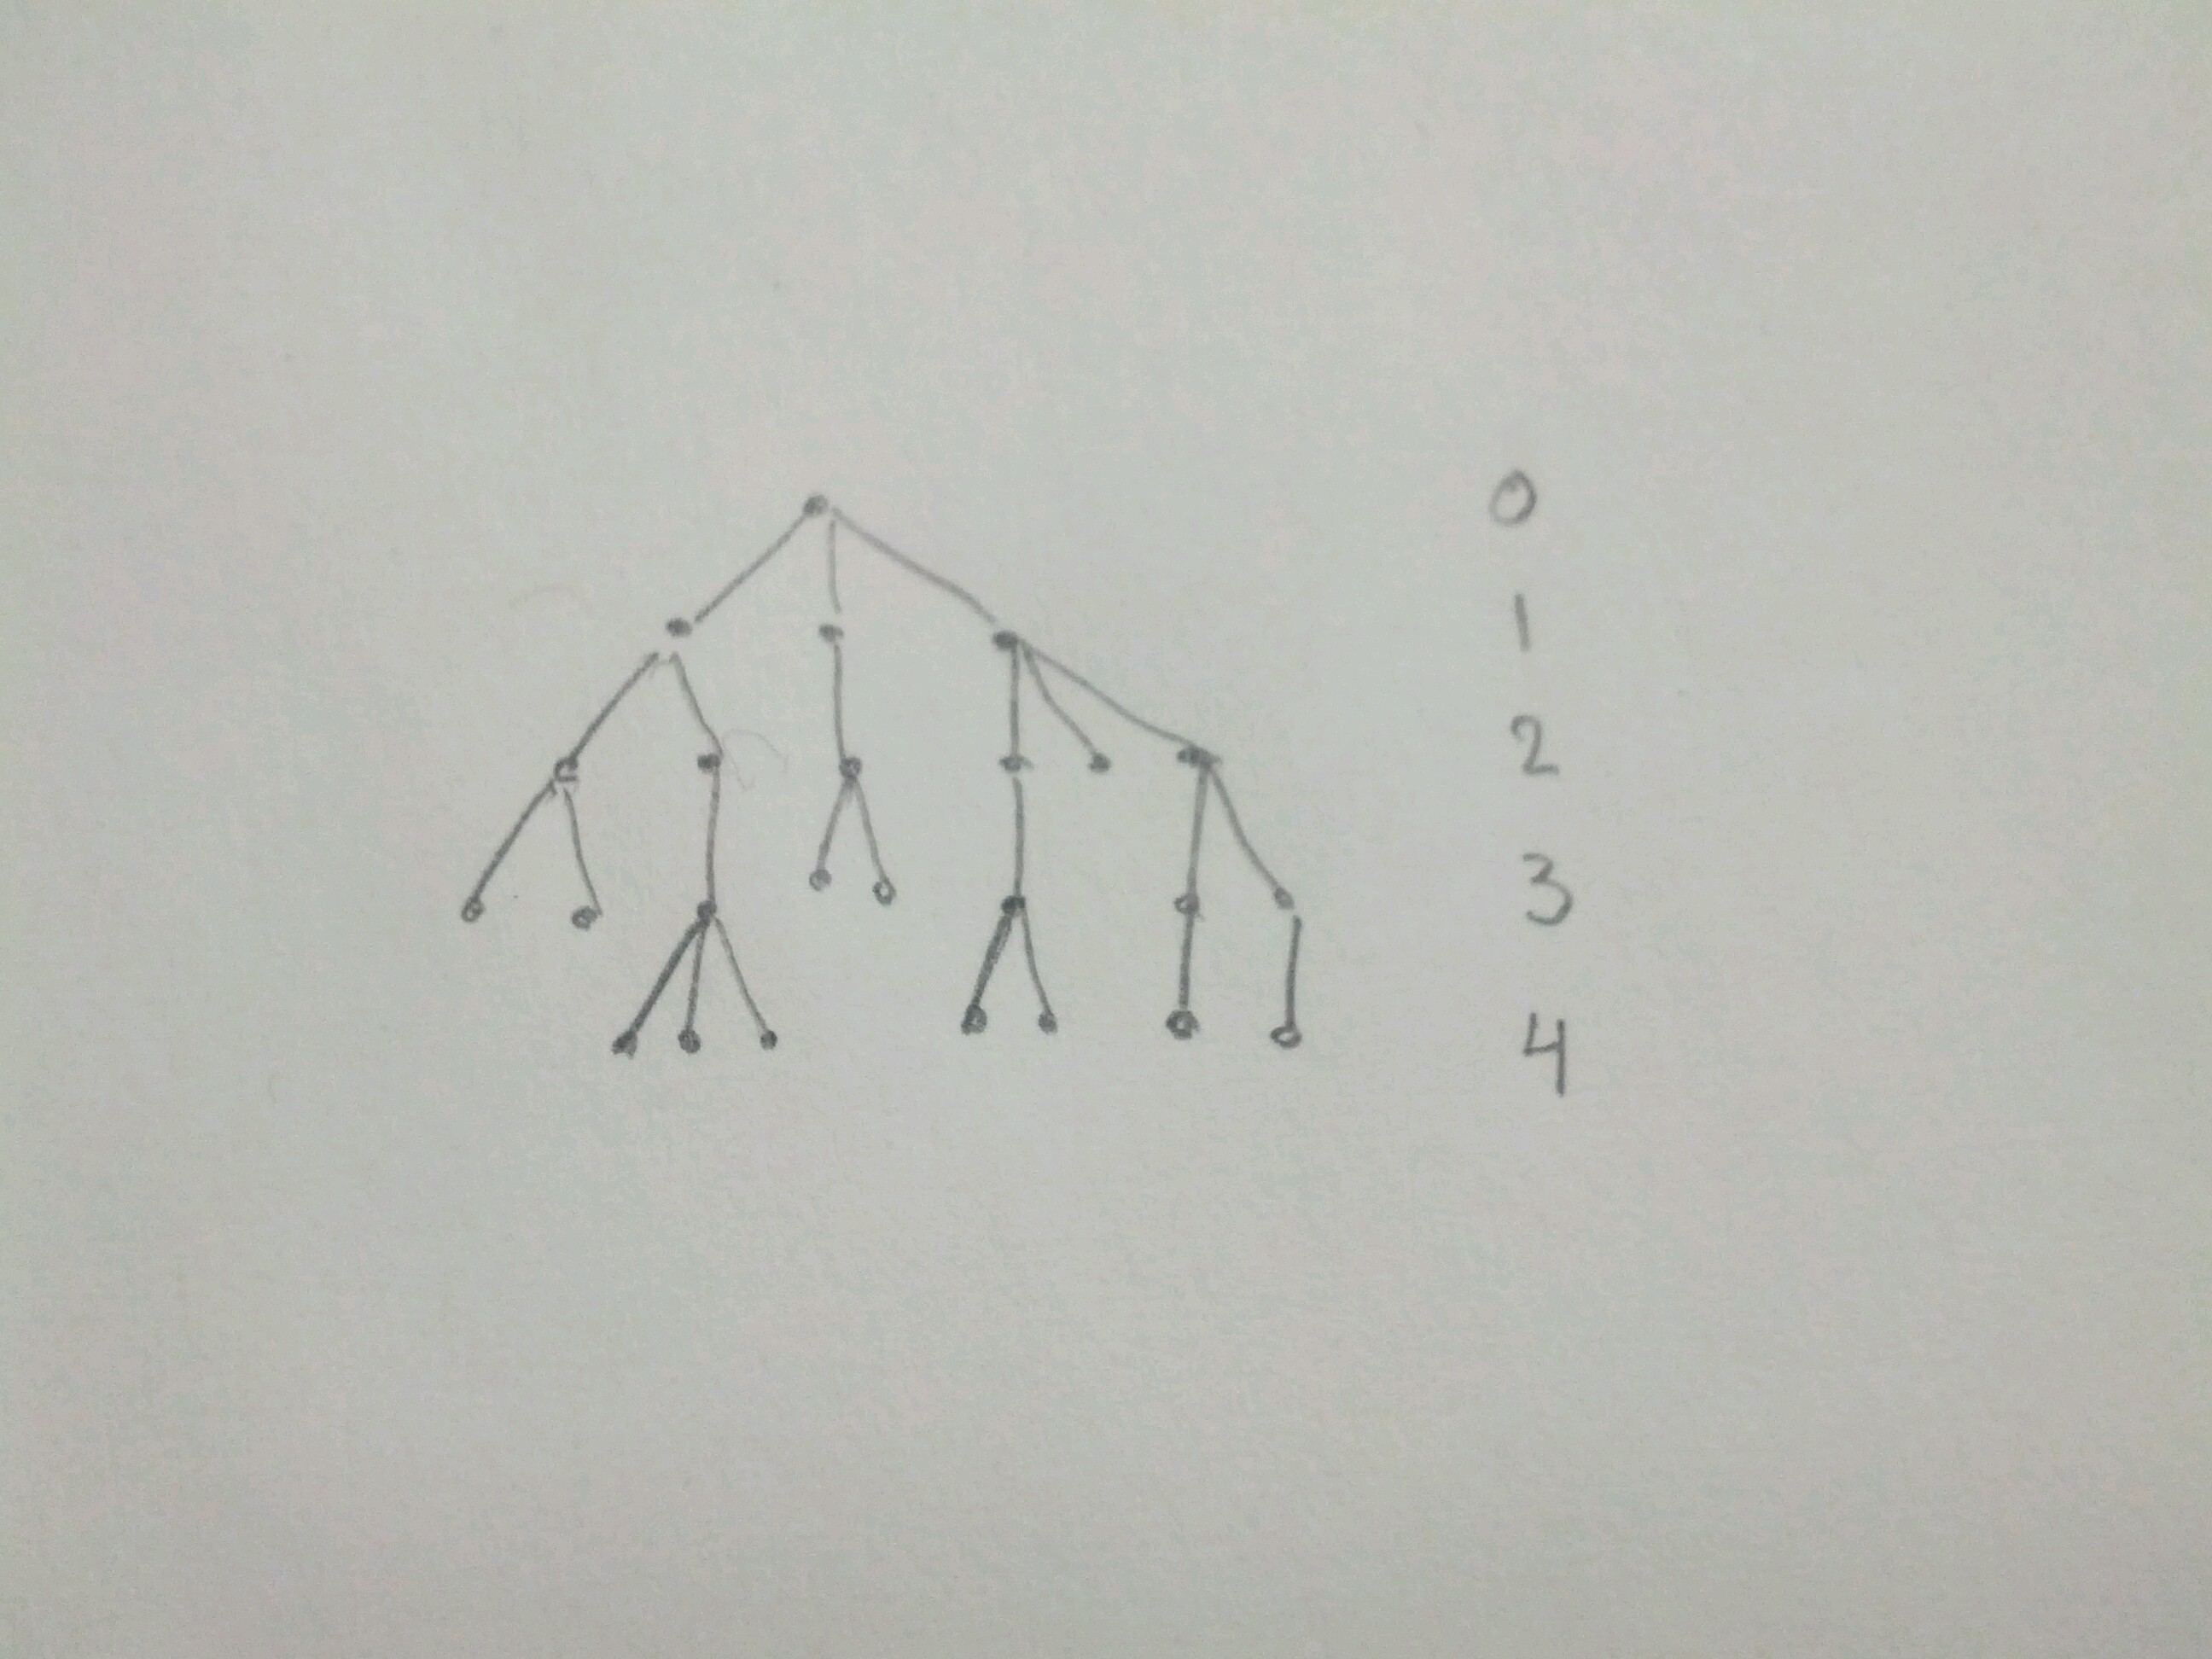 0
1
2
3
4